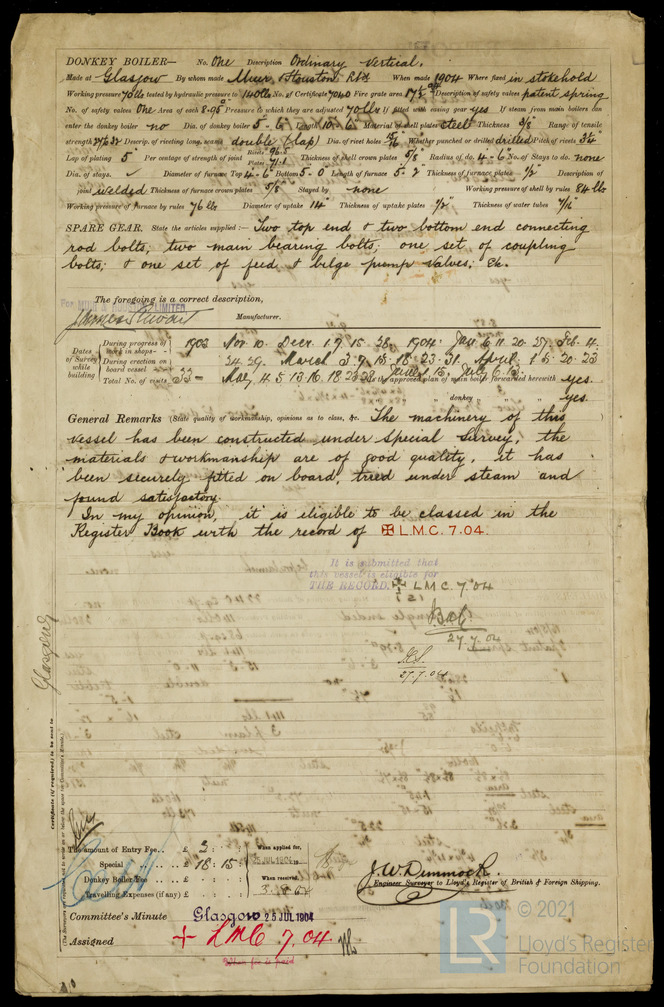 DONKEY BOILER— No. One Description Ordinary Vertical.
Made at Glasgow By whom made Muir & Houston Ltd When made 1904 Where fixed in stokehold
Working pressure 70 lbs tested by hydraulic pressure to 140 lbs No. of Certificate 7040 Fire grate area 17½ Description of safety valves patent spring
No. of safety valves One Area of each 8.95" Pressure to which they are adjusted 70 lbs If fitted with easing gear yes If steam from main boilers can
enter the donkey boiler no Dia. of donkey boiler 5-6" Length 10-6" Material of shell plates steel Thickness 3/8 Range of tensile
strength 27 & 32 Descrip. of riveting long. seams double (lap) Dia. of rivet holes Whether punched or drilled drilled Pitch of rivets
Lap of plating 5" Per centage of strength of joint Rivets 96.5 Plates 71.1 Thickness of shell crown plates 5/8 Radius of do. 4-6 No. of Stays to do. none
Dia. of stays. ✓ Diameter of furnace Top 4-6" Bottom 5-0" Length of furnace 5-2 Thickness of furnace plates ½" Description of
joint welded Thickness of furnace crown plates 5/8" Stayed by none Working pressure of shell by rules 84 lbs
Working pressure of furnace by rules 76 lbs Diameter of uptake 14" Thickness of uptake plates ½" Thickness of water tubes 7/16"
SPARE GEAR. State the articles supplied:— Two top end & two bottom end connecting
rod bolts, two main bearing bolts; one set of coupling
bolts; & one set of feed & bilge pump valves; &c.
The foregoing is a correct description,
For MUIR & HOUSTON, LIMITED
James Stewart Manufacturer.
Dates of Survey while building
During progress of work in shops - - 1903 Nov. 10. Decr. 1. 9. 15. 28. 1904. Jan. 6. 11. 20. 27. Feb. 4.
During erection on board vessel - - - 24. 29. March 3. 9. 15. 18. 23. 31. April 1. 5. 20. 23
Total No. of visits 33 — May 4. 5. 13. 16. 18. 23. 28. June 1. 15. July 6. 13.
Is the approved plan of main boiler forwarded herewith yes.
" " " donkey " " " yes.
General Remarks (State quality of workmanship, opinions as to class, &c. The machinery of this
vessel has been constructed under special survey, the
materials & workmanship are of good quality, it has
been securely fitted on board, tried under steam and
found satisfactory.
In my opinion, it is eligible to be classed in the
Register Book with the record of ✠ L.M.C. 7.04.
It is submitted that
this vessel is eligible for
THE RECORD. ✠ L.M.C. 7.04
27.7.04
27.7.04
Glasgow
Certificate (if required) to be sent to
(The Surveyors are requested not to write on or below the space for Committee's Minute.)
The amount of Entry Fee . . £ 2 : :
Special . . . . £ 18 : 15 :
Donkey Boiler Fee . . . £ : :
Travelling Expenses (if any) £ : :
When applied for,
JUL 1904
When received,
J. W. Dimmock.
Engineer Surveyor to Lloyd's Register of British & Foreign Shipping.
Committee's Minute Glasgow 25 JUL 1904
Assigned + LMC 7.04
When fee is paid
© 2021
LR Lloyd's Register
Foundation